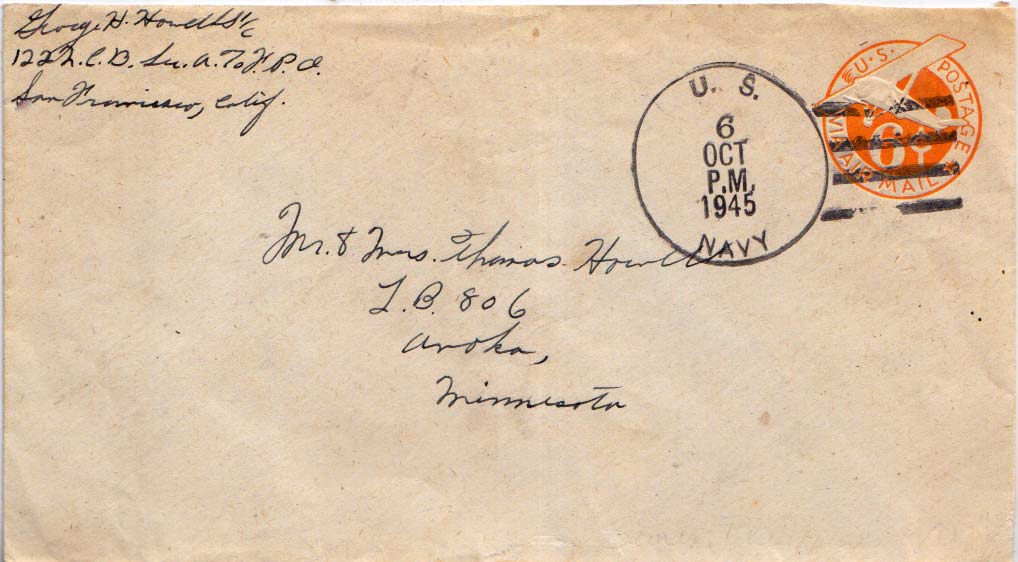 George H. Howell S 1/c
122 N.C.B. Su. A. To F.P.O.
San Francisco, Calif.
U. S.
6
OCT
P.M.
1945
NAVY
U.S. POSTAGE
6¢
VIA AIR MAIL
Mr. & Mrs. Thomas Howell
L.B. 806
Anoka,
Minnesota